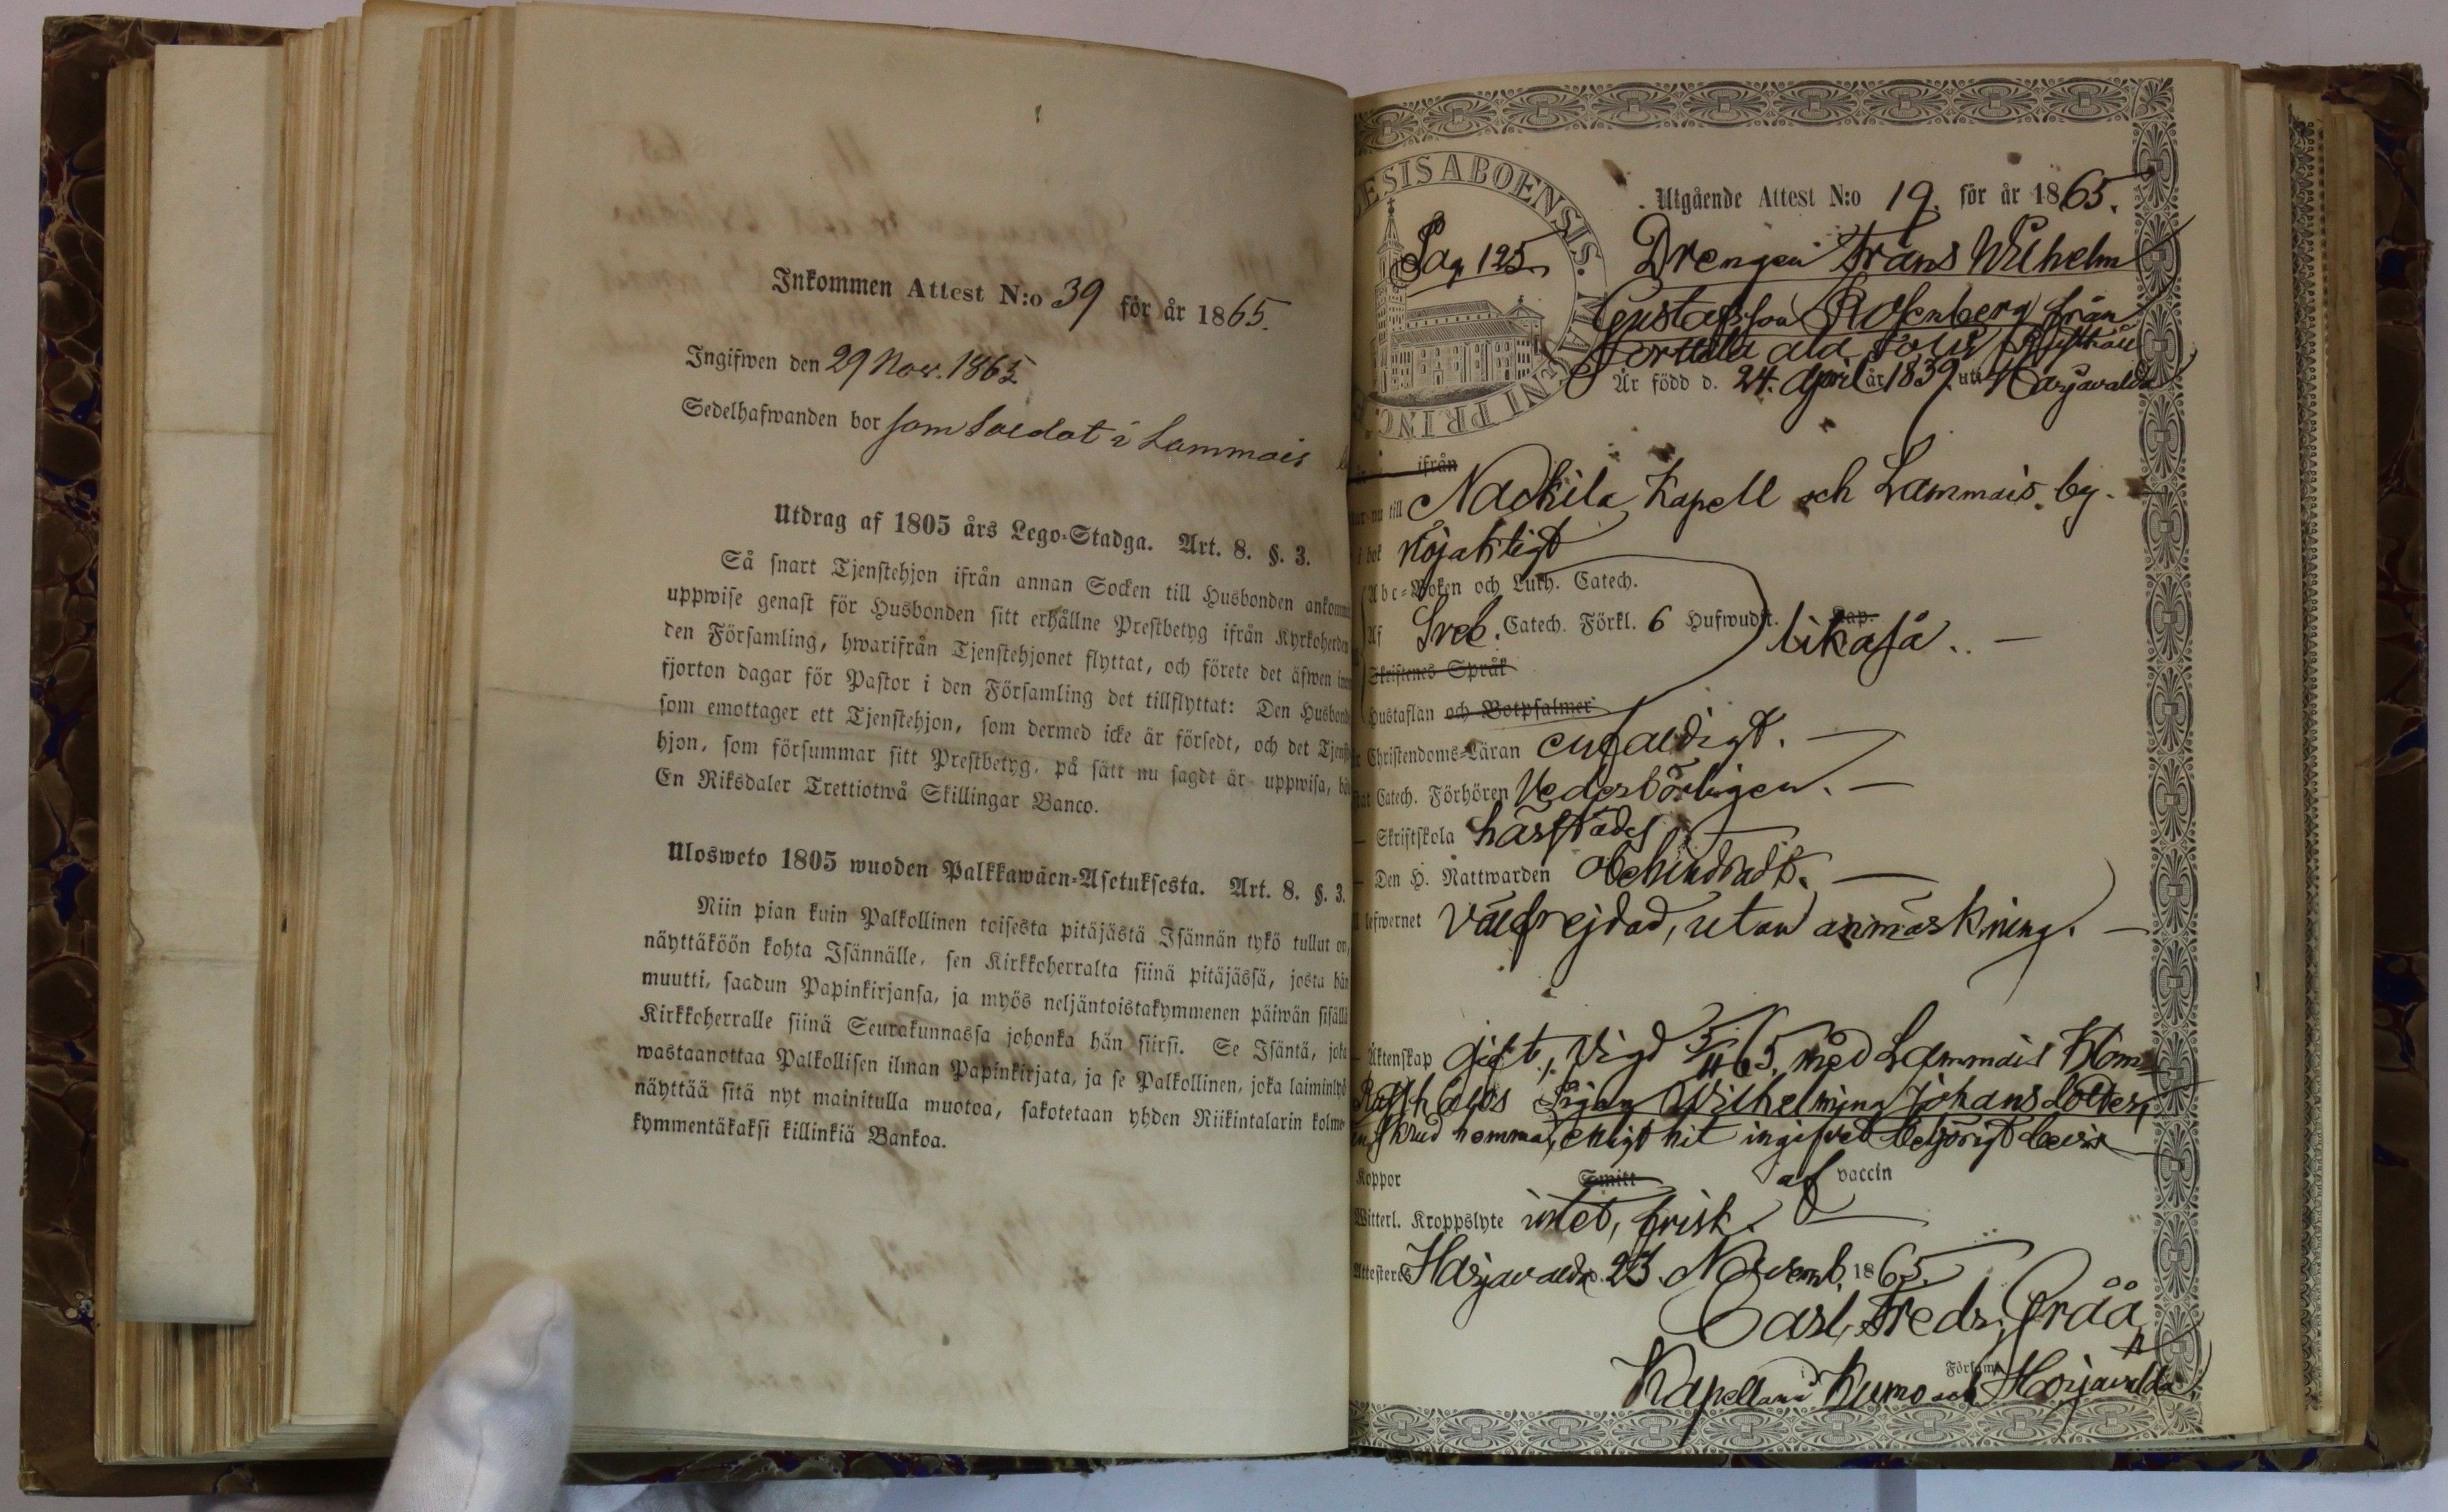 Inkommen Attest N:o 39 för år 1865.
Ingifwen den 29 Nov. 1865
Sedelhafwanden bor som Soldat i Lammais
Utdrag af 1805 års Lego-Stadga. Art. 8. §. 3.
Så snart Tjenstehjon ifrån annan Socken till Husbonden
uppwise genast för Husbonden sitt erhållne Prestbetyg ifrån Kyrkoherden
den Församling, hwarifrån Tjenstehjonet flyttat, och förete det äfwen
fjorton dagar för Pastor i den Församling det tillflyttat: Den
som emottager ett Tjenstehjon, som dermed icke är försedt, och det
hjon, som försummar sitt Prestbetyg, på sätt nu sagdt är uppwisa,
En Riksdaler Trettiotwå Skillingar Banco.
Ulosweto 1805 wuoden Palkkawäen-Asetuksesta. Art. 8. §. 3.
Niin pian kuin Palkollinen toisesta pitäjästä Isännän tykö tullut on,
näyttäköön kohta Isännälle, sen Kirkkoherralta siinä pitäjässä, josta hän
muutti, saadun Papinkirjansa, ja myös neljäntoistakymmenen päiwän sisällä
Kirkkoherralle siinä Seurakunnassa johonka hän siirsi. Se Isäntä, joka
wastaanottaa Palkollisen ilman Papinkirjata, ja se Palkollinen, joka laiminlyö
näyttää sitä nyt mainitulla muotoa, sakotetaan yhden Riikintalarin kolme
kymmentäkaksi killinkiä Bankoa.
ESIS ABOENSIS. MAGNI PRINC
Utgående Attest N:o 19. för år 1865.
Pag 125. Drengen Frans Wilhelm
Gustafsson Rosenberg från
Är född d. 24. April år 1839 uti Harjavalda
ifrån
till Nackila Kapell och Lammais by.
i bok nöjaktigt
Abc-Boken och Luth. Catech.
Af Sveb. Catech. Förkl. 6 Hufwudst. Cap. likaså.. —
Skriftenes Språk
Hustaflan och Botpsalmer
Christendoms-Läran enfaldigt. —
Catech. Förhören Vederbörligen. —
— Skriftskola härstädes
— Den H. Nattwarden obehindradt. —
lefwernet Välfrejdad, utan anmärkning. —
Äktenskap gift, Vigd 5/11 65, med Lammais
Wilhelmina Johansdotter,
hemma, enligt hit ingifvet behörigt bevis
Koppor Smitt af vaccin
Witterl. Kroppslyte intet, frisk.
Attesteras Harjavalda d. 23. Novemb. 1865.
Carl Fredr. Gråå
Kapellan i Kumo och Harjavalda Församl.